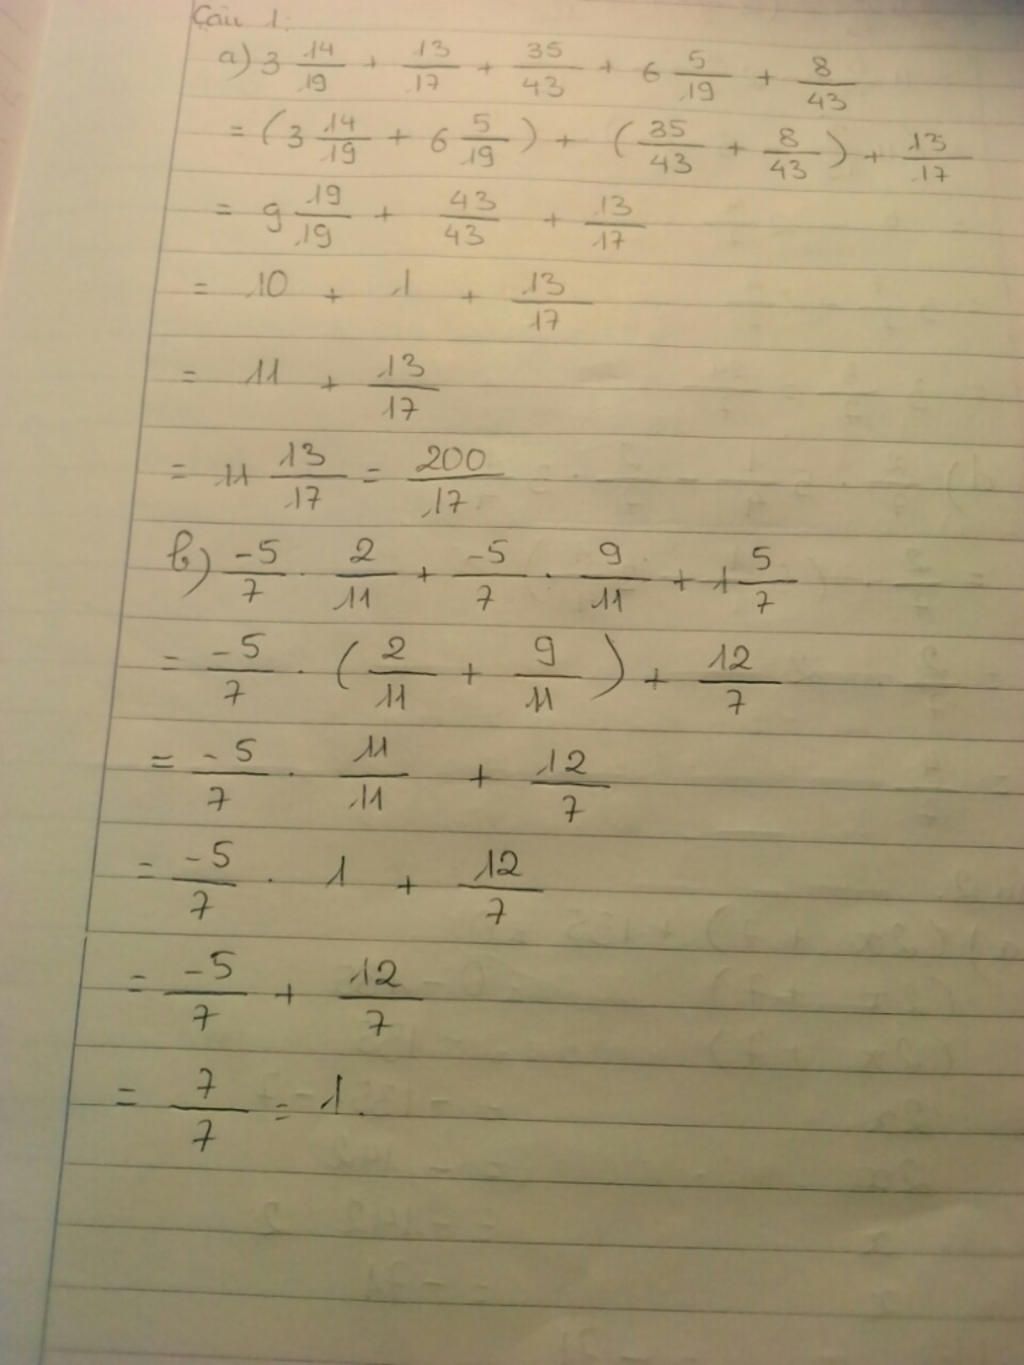 Câu 1:
a) 3 14/19 + 13/17 + 35/43 + 6 5/19 + 8/43
= (3 14/19 + 6 5/19) + (35/43 + 8/43) + 13/17
= 9 19/19 + 43/43 + 13/17
= 10 + 1 + 13/17
= 11 + 13/17
= 11 13/17 = 200/17
b) -5/7 . 2/11 + -5/7 . 9/11 + 1 5/7
= -5/7 . (2/11 + 9/11) + 12/7
= -5/7 . 11/11 + 12/7
= -5/7 . 1 + 12/7
= -5/7 + 12/7
= 7/7 = 1.